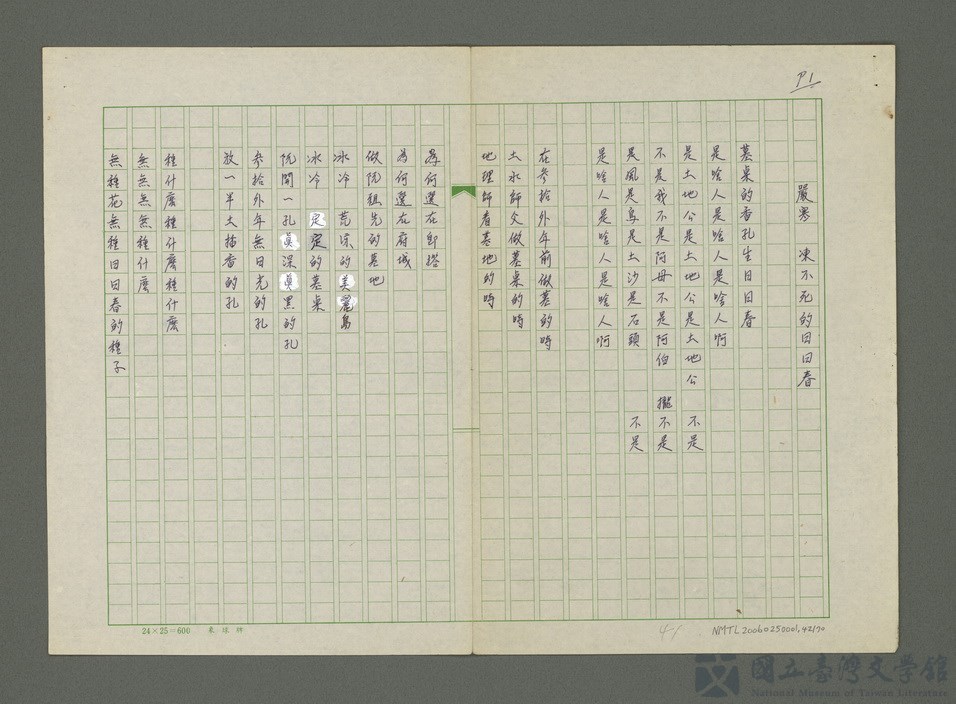 P1
嚴寒 凍不死的日日春
墓桌的香孔生日日春
是啥人是啥人是啥人啊
是土地公是土地公是土地公 不是
不是我不是阿母不是阿伯 攏不是
是風是鳥是土沙是石頭 不是
是啥人是啥人是啥人啊
在參拾外年前做墓的時
土水師父做墓桌的時
地理師看墓地的時
為何選在卽搭
為何選在府城
做阮祖先的墓地
冰冷 荒涼的美麗島
冰冷 定定的墓桌
阮開一孔眞深眞黑的孔
參拾外年無日光的孔
放一半土插香的孔
種什麼種什麼種什麼
無無無無種什麼
無種花無種日日春的種子
24×25=600
41
NMTL20060250001.42/70
國立臺灣文學館
National Museum of Taiwan Literature